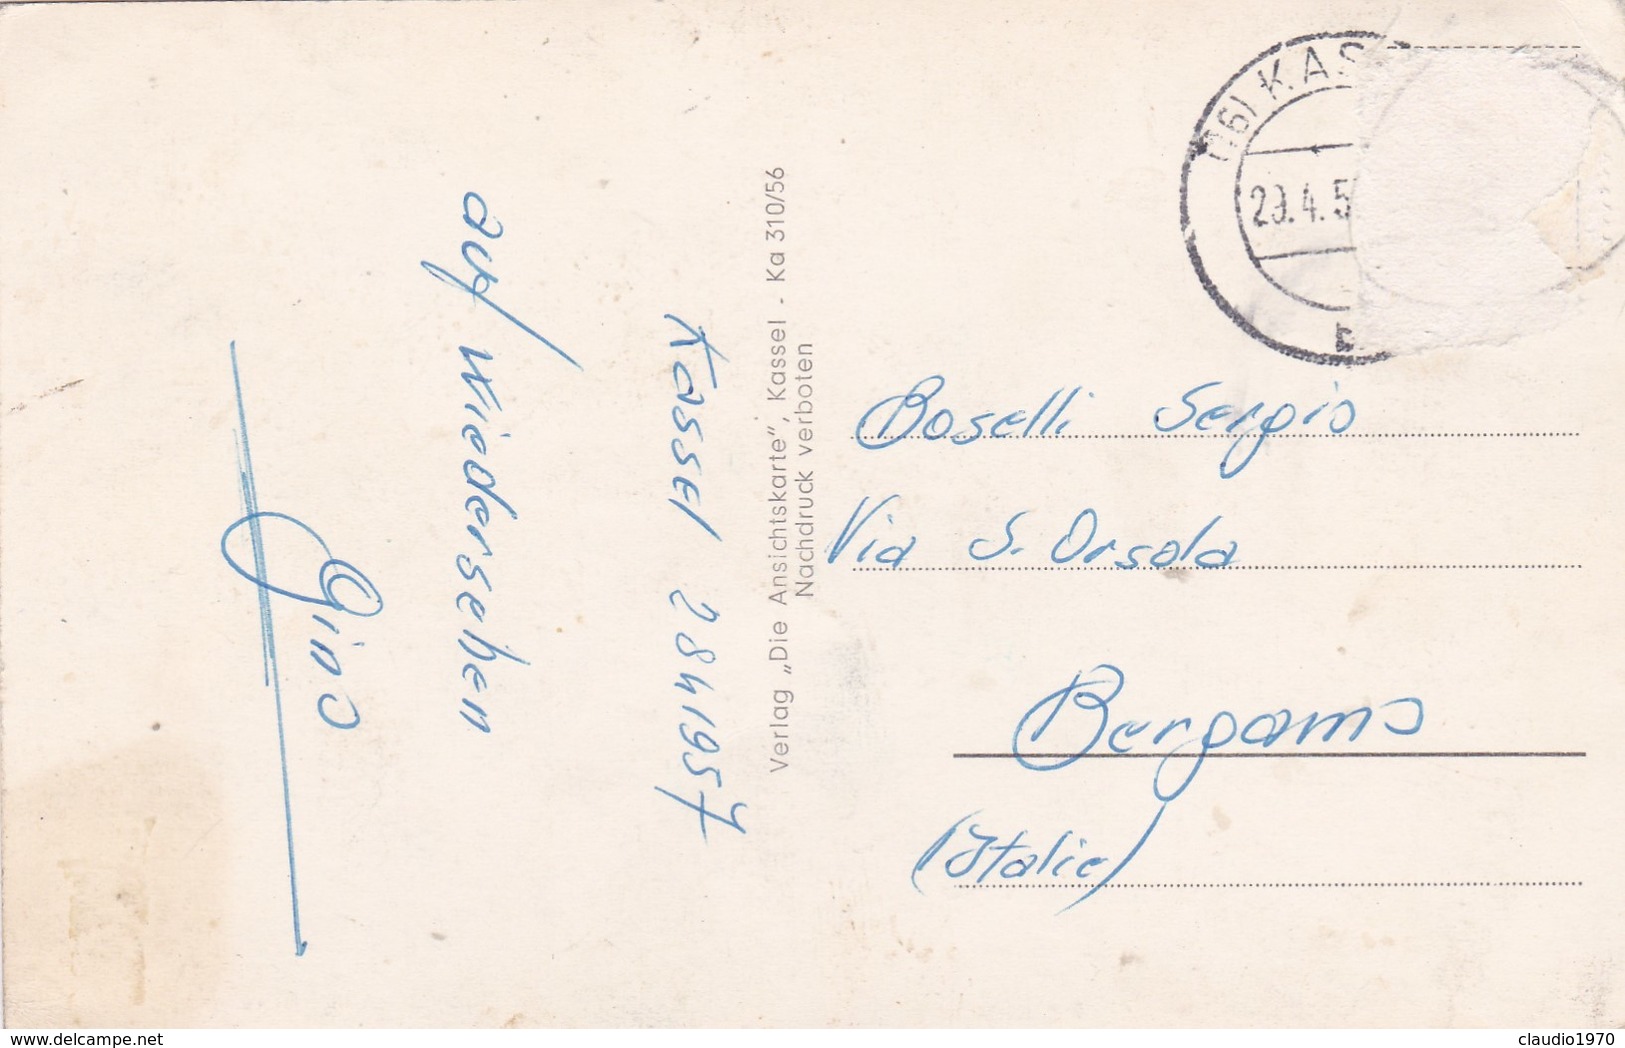 Kassel 28 4 1957
auf Wiedersehen
Gino
Verlag „Die Ansichtskarte“, Kassel - Ka 310/56
Nachdruck verboten
(16) KAS
29.4.5
b
Boselli Sergio
Via S. Orsola
Bergamo
(Italie)
delcampe.net
claudio1970